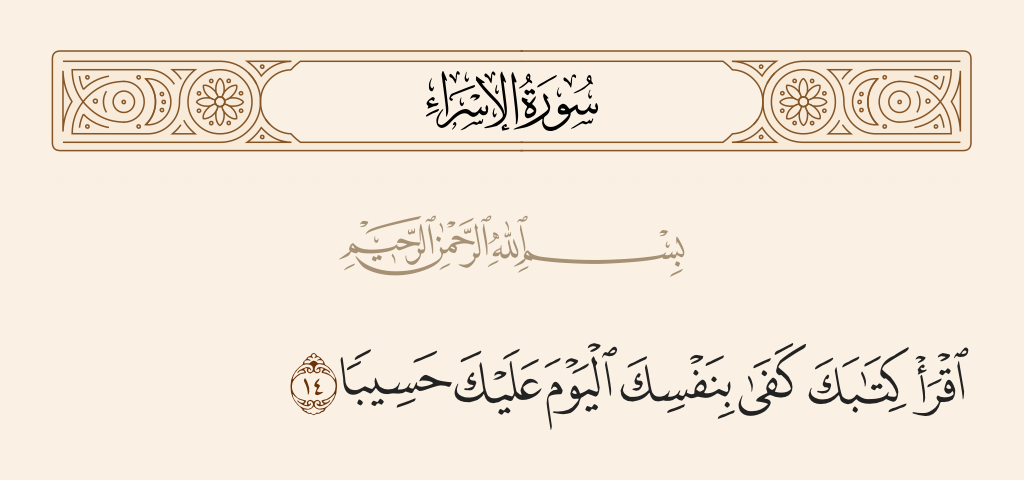 سُورَةُ الإِسْرَاءِ
بِسْمِ ٱللَّهِ ٱلرَّحْمَٰنِ ٱلرَّحِيمِ
ٱقْرَأْ كِتَٰبَكَ كَفَىٰ بِنَفْسِكَ ٱلْيَوْمَ عَلَيْكَ حَسِيبًا ١٤